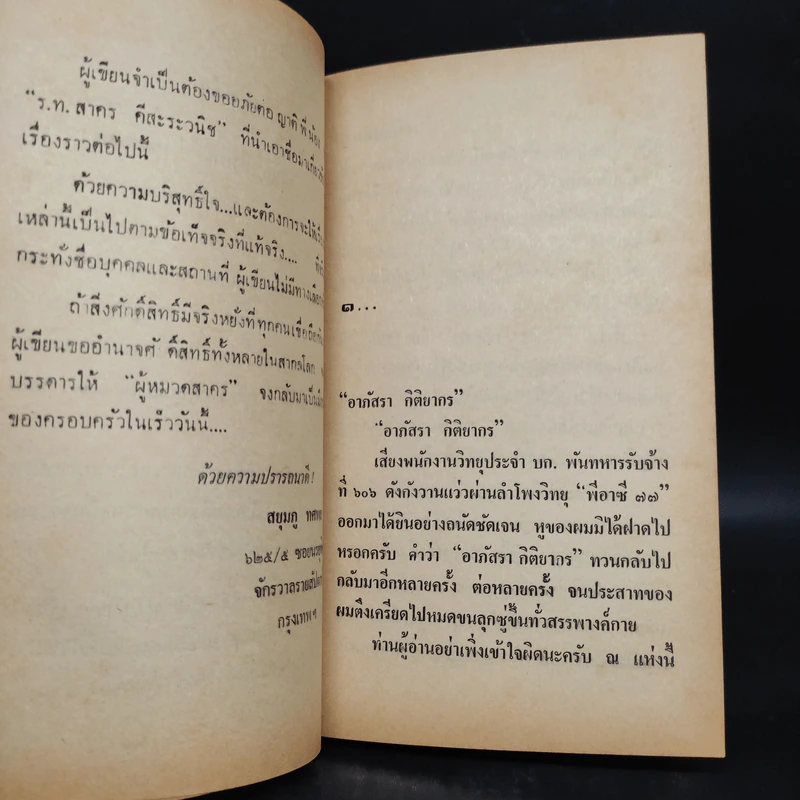 ผู้เขียนจำเป็นต้องขออภัยต่อ ญาติ พี่น้อง
"ร.ท. สาคร คีสะระวนิช" ที่นำเอาชื่อมา
เรื่องราวต่อไปนี้
ด้วยความบริสุทธิ์ใจ...และต้องการจะให้
เหล่านี้เป็นไปตามข้อเท็จจริงที่แท้จริง....
กระทั่งชื่อบุคคลและสถานที่ ผู้เขียนไม่มีทาง
ถ้าสิ่งศักดิ์สิทธิ์มีจริงหยั่งที่ทุกคนเชื่อ
ผู้เขียนขออำนาจศั ดิ์สิทธิ์ทั้งหลายในสากลโลก
บรรดารให้ "ผู้หมวดสาคร" จงกลับมาเป็น
ของครอบครัวในเร็ววันนี้....
ด้วยความปรารถนาดี!
สยุมภู
๖๒๕/๕
จักรวาลรายสัปดาห์
กรุงเทพฯ
๑...
"อาภัสรา กิติยากร"
"อาภัสรา กิติยากร"
เสียงพนักงานวิทยุประจำ บก. พันทหารรับจ้าง
ที่ ๖๐๖ ดังกังวานแว่วผ่านลำโพงวิทยุ "พีอาซี ๗๗"
ออกมาได้ยินอย่างถนัดชัดเจน หูของผมมิได้ฝาดไป
หรอกครับ คำว่า "อาภัสรา กิติยากร" ทวนกลับไป
กลับมาอีกหลายครั้ง ต่อหลายครั้ง จนประสาทของ
ผมตึงเครียดไปหมดขนลุกซู่ขึ้นทั่วสรรพางค์กาย
ท่านผู้อ่านอย่าเพิ่งเข้าใจผิดนะครับ ณ แห่งนี้